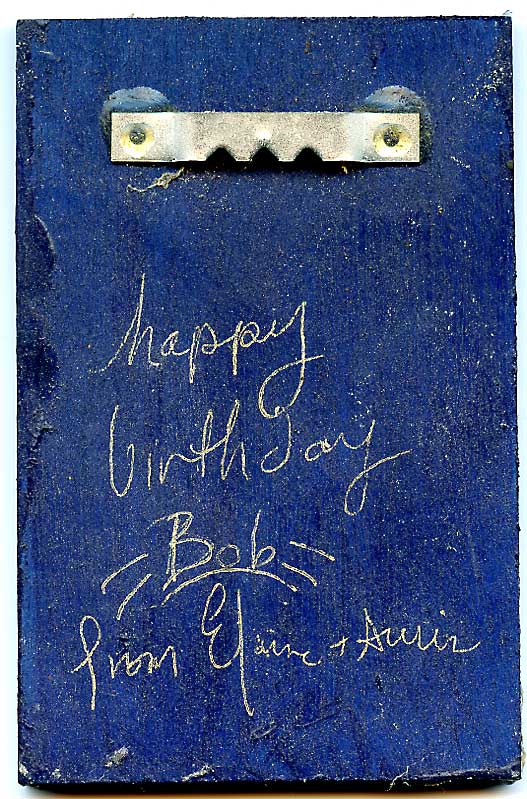 happy
birthday
Bob
from Elaine +